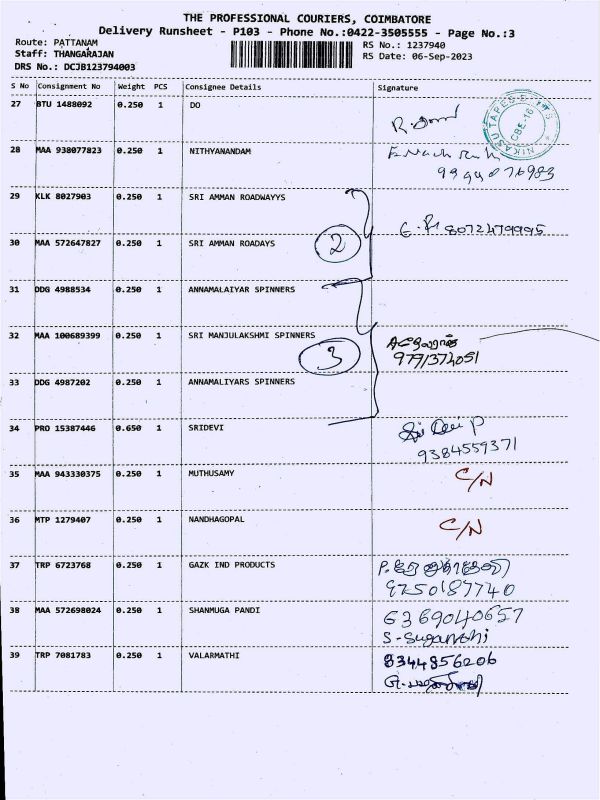 THE PROFESSIONAL COURIERS, COIMBATORE
Delivery Runsheet - P103 - Phone No.:0422-3505555 - Page No.:3
Route: PATTANAM
Staff: THANGARAJAN
DRS No.: DCJB123794003
RS No.: 1237940
RS Date: 06-Sep-2023
S No Consignment No Weight PCS Consignee Details Signature
27 BTU 1488092 0.250 1 DO
NIKASU TAPES CBE-16
28 MAA 938077823 0.250 1 NITHYANANDAM
9994876983
29 KLK 8027903 0.250 1 SRI AMMAN ROADWAYYS
2 8072479995
30 MAA 572647827 0.250 1 SRI AMMAN ROADAYS
31 DDG 4988534 0.250 1 ANNAMALAIYAR SPINNERS
32 MAA 100689399 0.250 1 SRI MANJULAKSHMI SPINNERS
3 9791374051
33 DDG 4987202 0.250 1 ANNAMALIYARS SPINNERS
34 PRO 15387446 0.650 1 SRIDEVI
Sri Devi P
9384559371
35 MAA 943330375 0.250 1 MUTHUSAMY C/N
36 MTP 1279407 0.250 1 NANDHAGOPAL C/N
37 TRP 6723768 0.250 1 GAZK IND PRODUCTS
8750187740
38 MAA 572698024 0.250 1 SHANMUGA PANDI 6369040657
S-Suganthi
39 TRP 7081783 0.250 1 VALARMATHI 8344856206